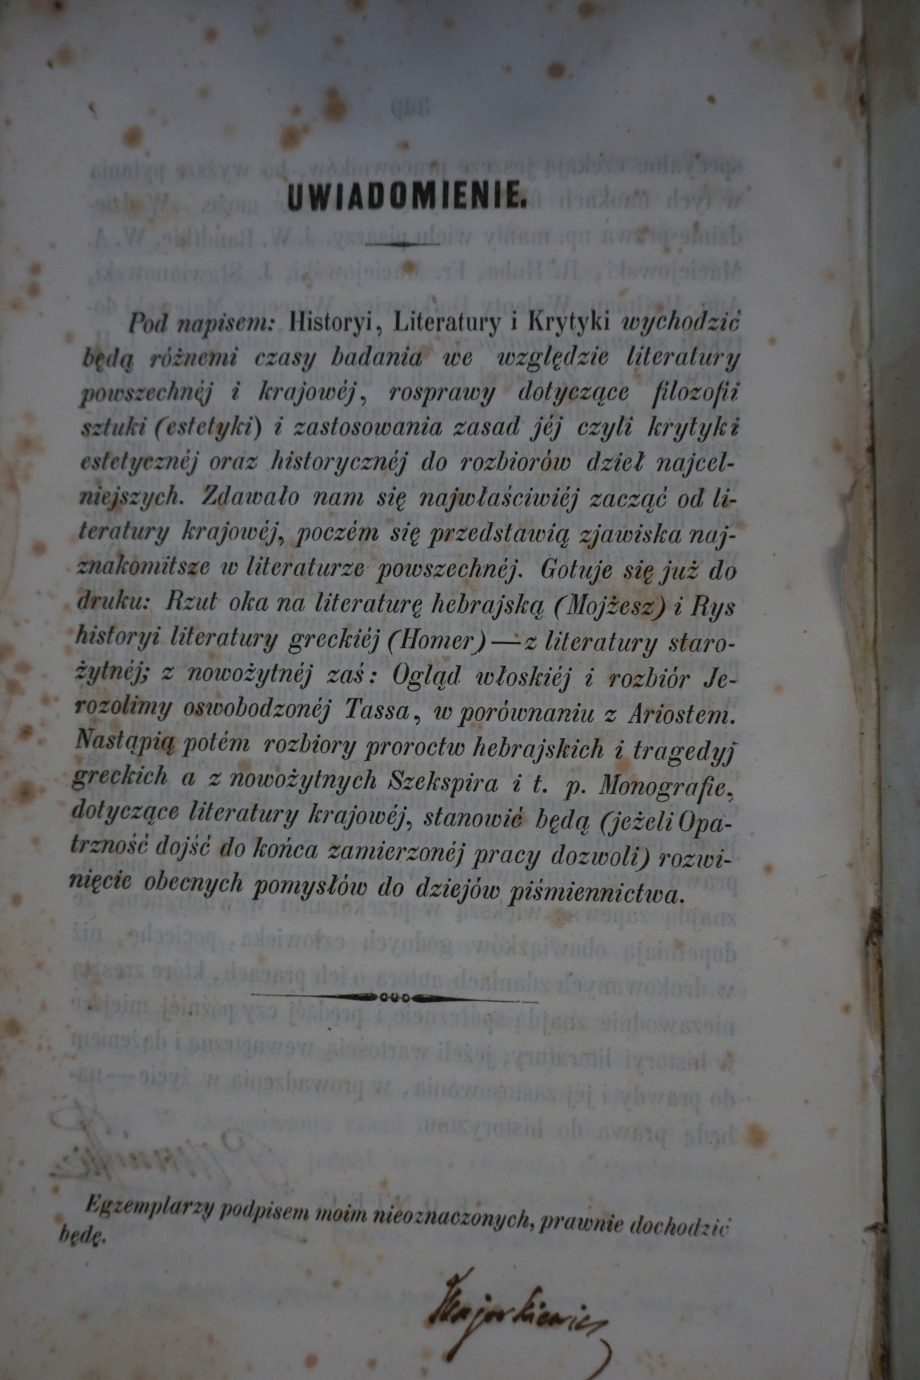 UWIADOMIENIE.
Pod napisem: Historyi, Literatury i Krytyki wychodzić
będą różnemi czasy badania we względzie literatury
powszechnéj i krajowéj, rosprawy dotyczące filozofii
sztuki (estetyki) i zastosowania zasad jéj czyli krytyki
estetycznéj oraz historycznéj do rozbiorów dzieł najcel-
niejszych. Zdawało nam się najwłaściwiéj zacząć od li-
teratury krajowéj, poczém się przedstawią zjawiska naj-
znakomitsze w literaturze powszechnéj. Gotuje się już do
druku: Rzut oka na literaturę hebrajską (Mojżesz) i Rys
historyi literatury greckiéj (Homer) — z literatury staro-
żytnéj; z nowożytnéj zaś: Ogląd włoskiéj i rozbiór Je-
rozolimy oswobodzonéj Tassa, w porównaniu z Ariostem.
Nastąpią potém rozbiory proroctw hebrajskich i tragedyj
greckich a z nowożytnych Szekspira i t. p. Monografie,
dotyczące literatury krajowéj, stanowić będą (jeżeli Opa-
trzność dojść do końca zamierzonéj pracy dozwoli) rozwi-
nięcie obecnych pomysłów do dziejów piśmiennictwa.
Egzemplarzy podpisem moim nieoznaczonych, prawnie dochodzić
będę.